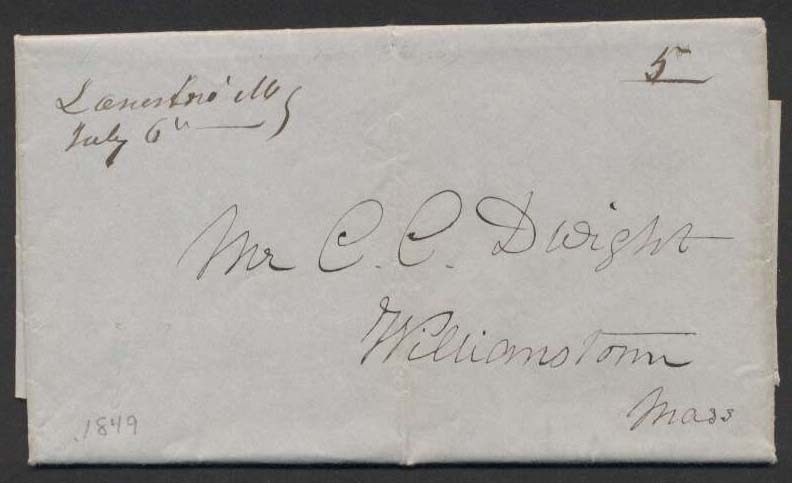 Lanesboro' Ms
July 6th
5
Mr C. C. Dwight
Williamstown
Mass
1849